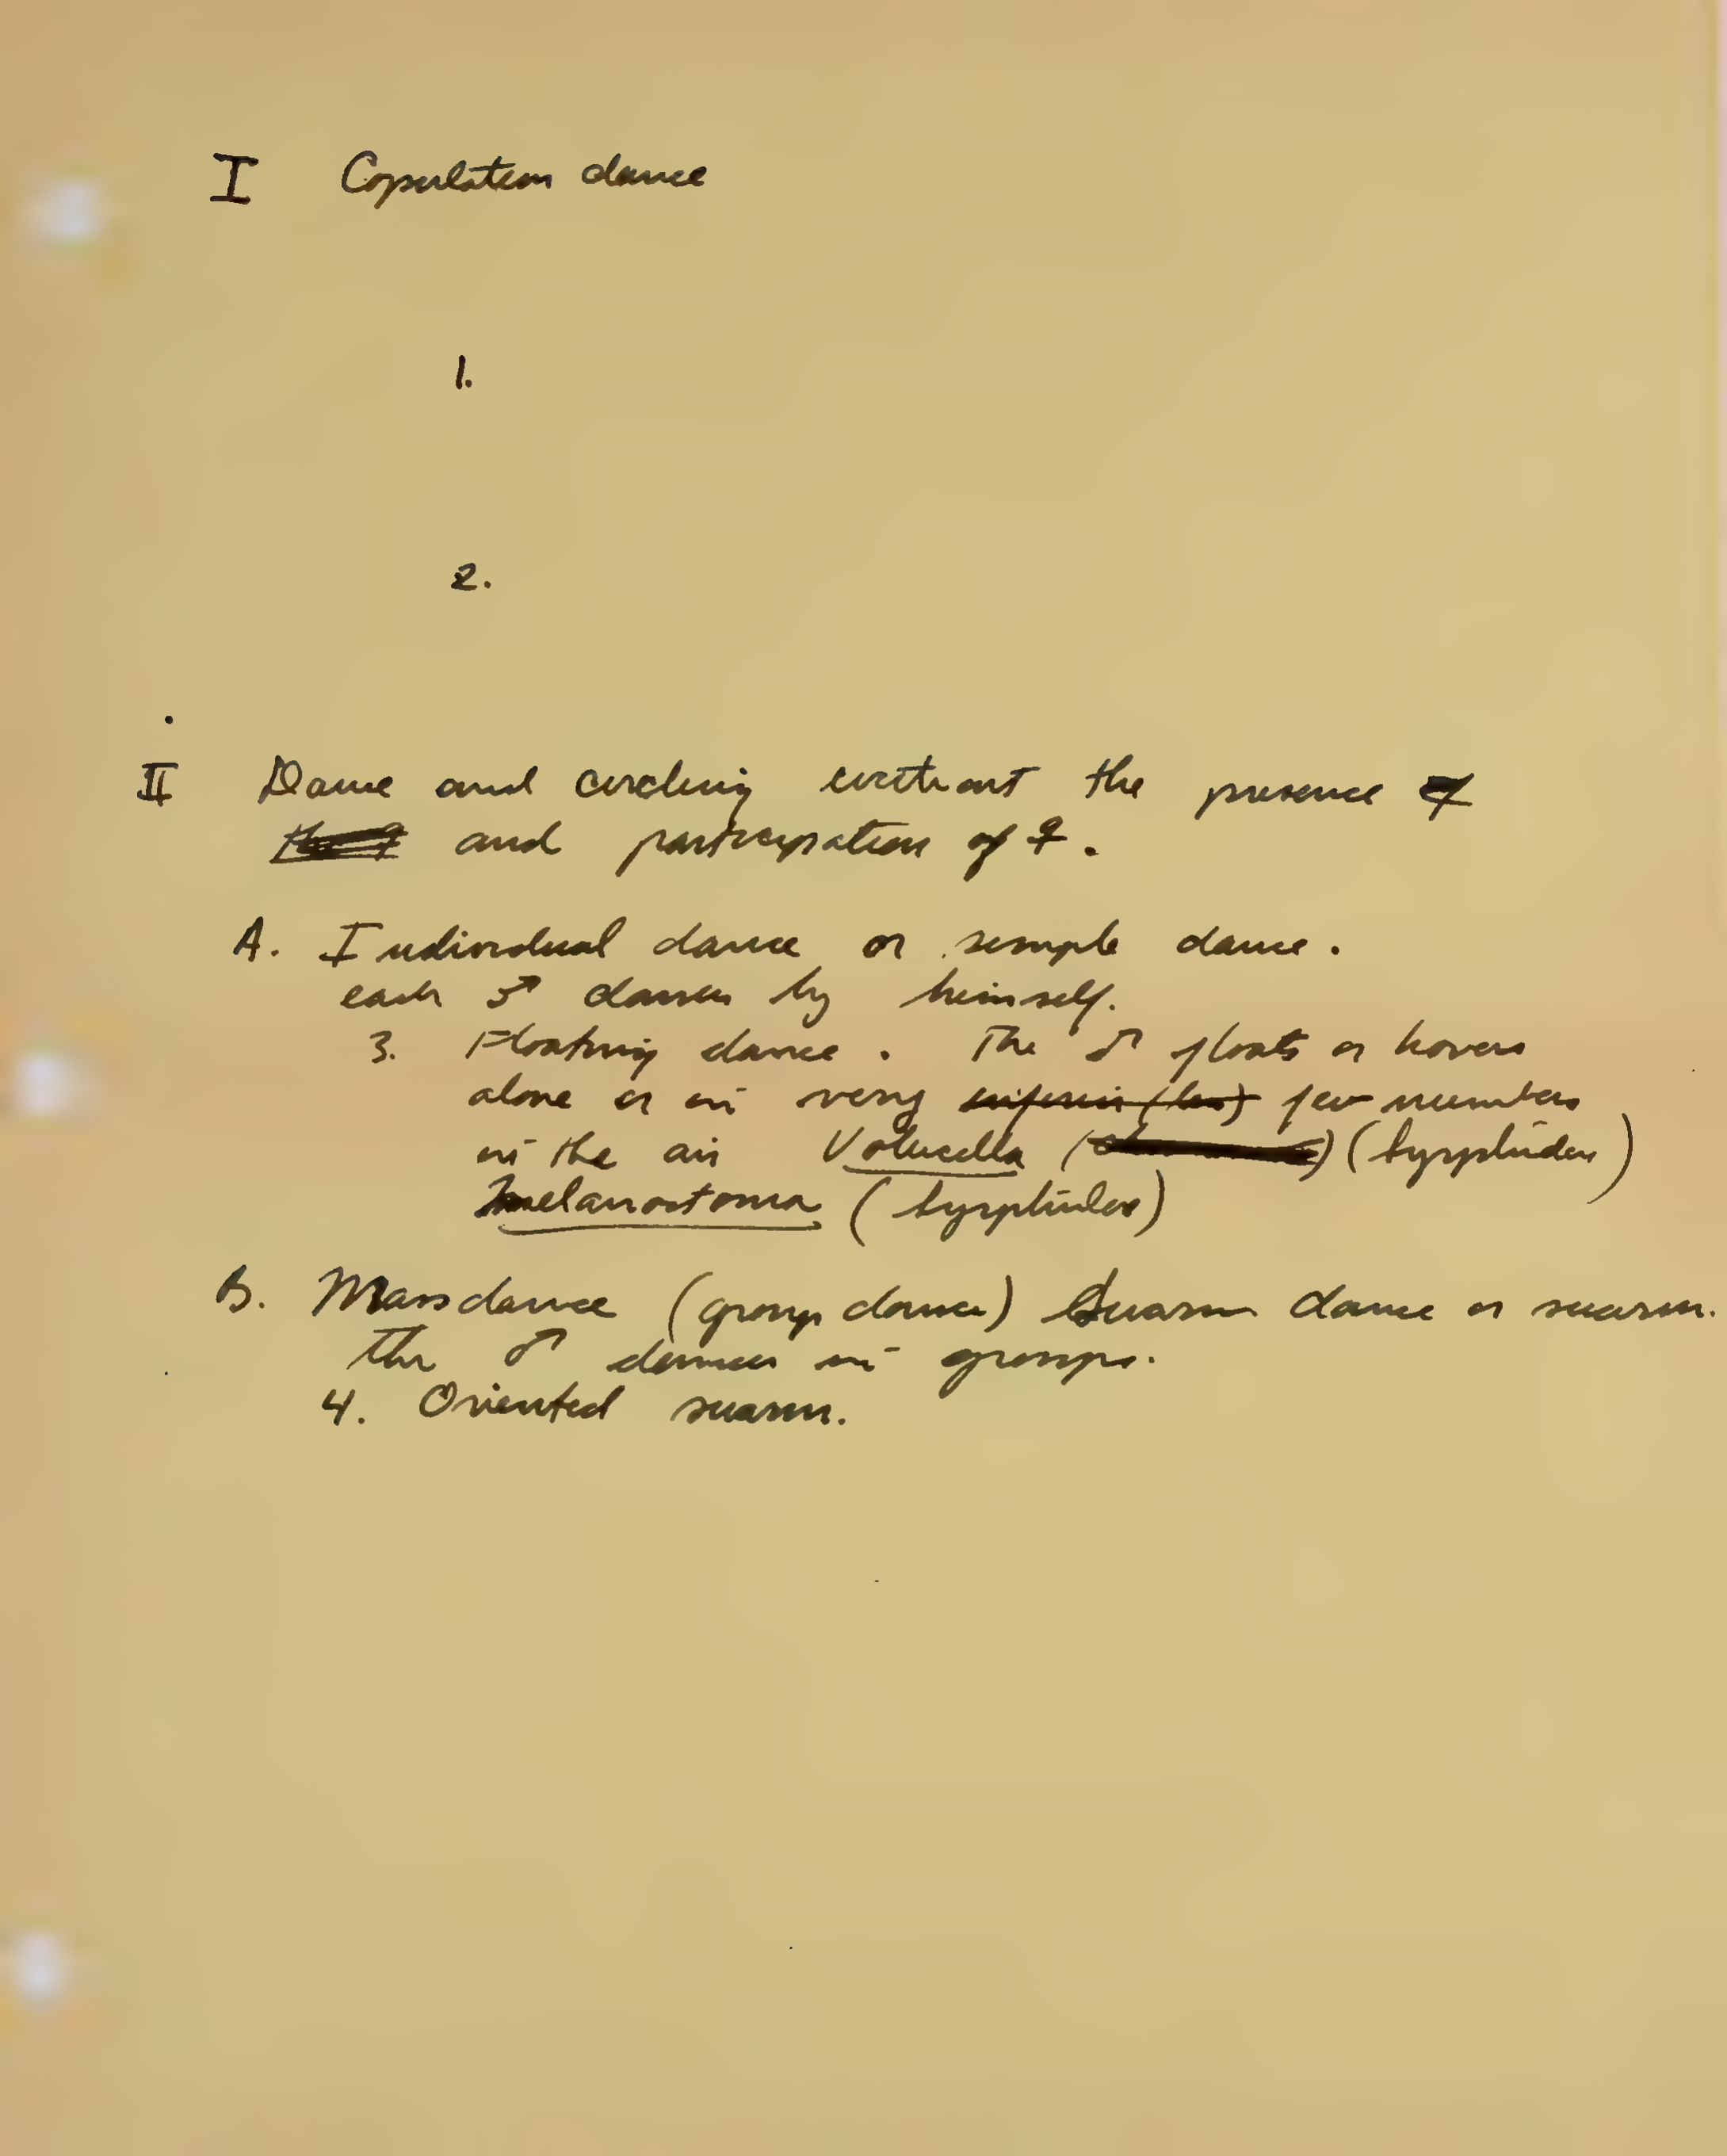 I Copulation dance
1.
2.
II Dance and circling without the presence of
the ♀ and participation of ♀.
A. Individual dance or simple dance.
each ♂ dances by himself.
3. Floating dance. The ♂ floats or hovers
alone or in very few numbers
in the air Volucella (Syrphidae)
Melanostoma (Syrphidae)
B. Mass dance (group dance) Swarm dance or swarm.
The ♂ dances in groups.
4. Oriented swarm.